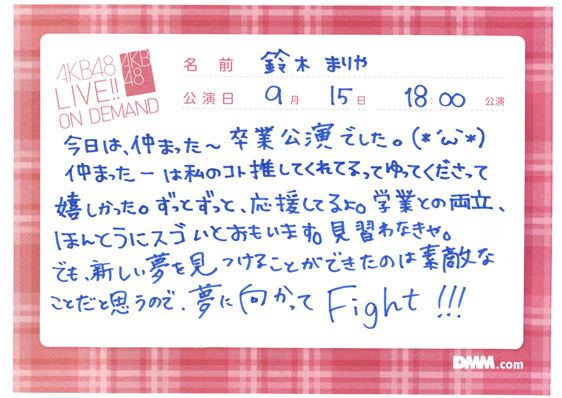 AKB48
LIVE!!
ON DEMAND
AKB
48
名前 鈴木 まりや
公演日 9月 15日 18:00 公演
今日は、仲まった〜卒業公演でした。(*´ω`*)
仲まったーは私のコト推してくれてるってゆってくださって
嬉しかった。ずっとずっと、応援してるよ。学業との両立、
ほんとうにスゴいとおもいます。見習わなきゃ。
でも、新しい夢を見つけることができたのは素敵な
ことだと思うので、夢に向かって Fight!!!
DMM.com